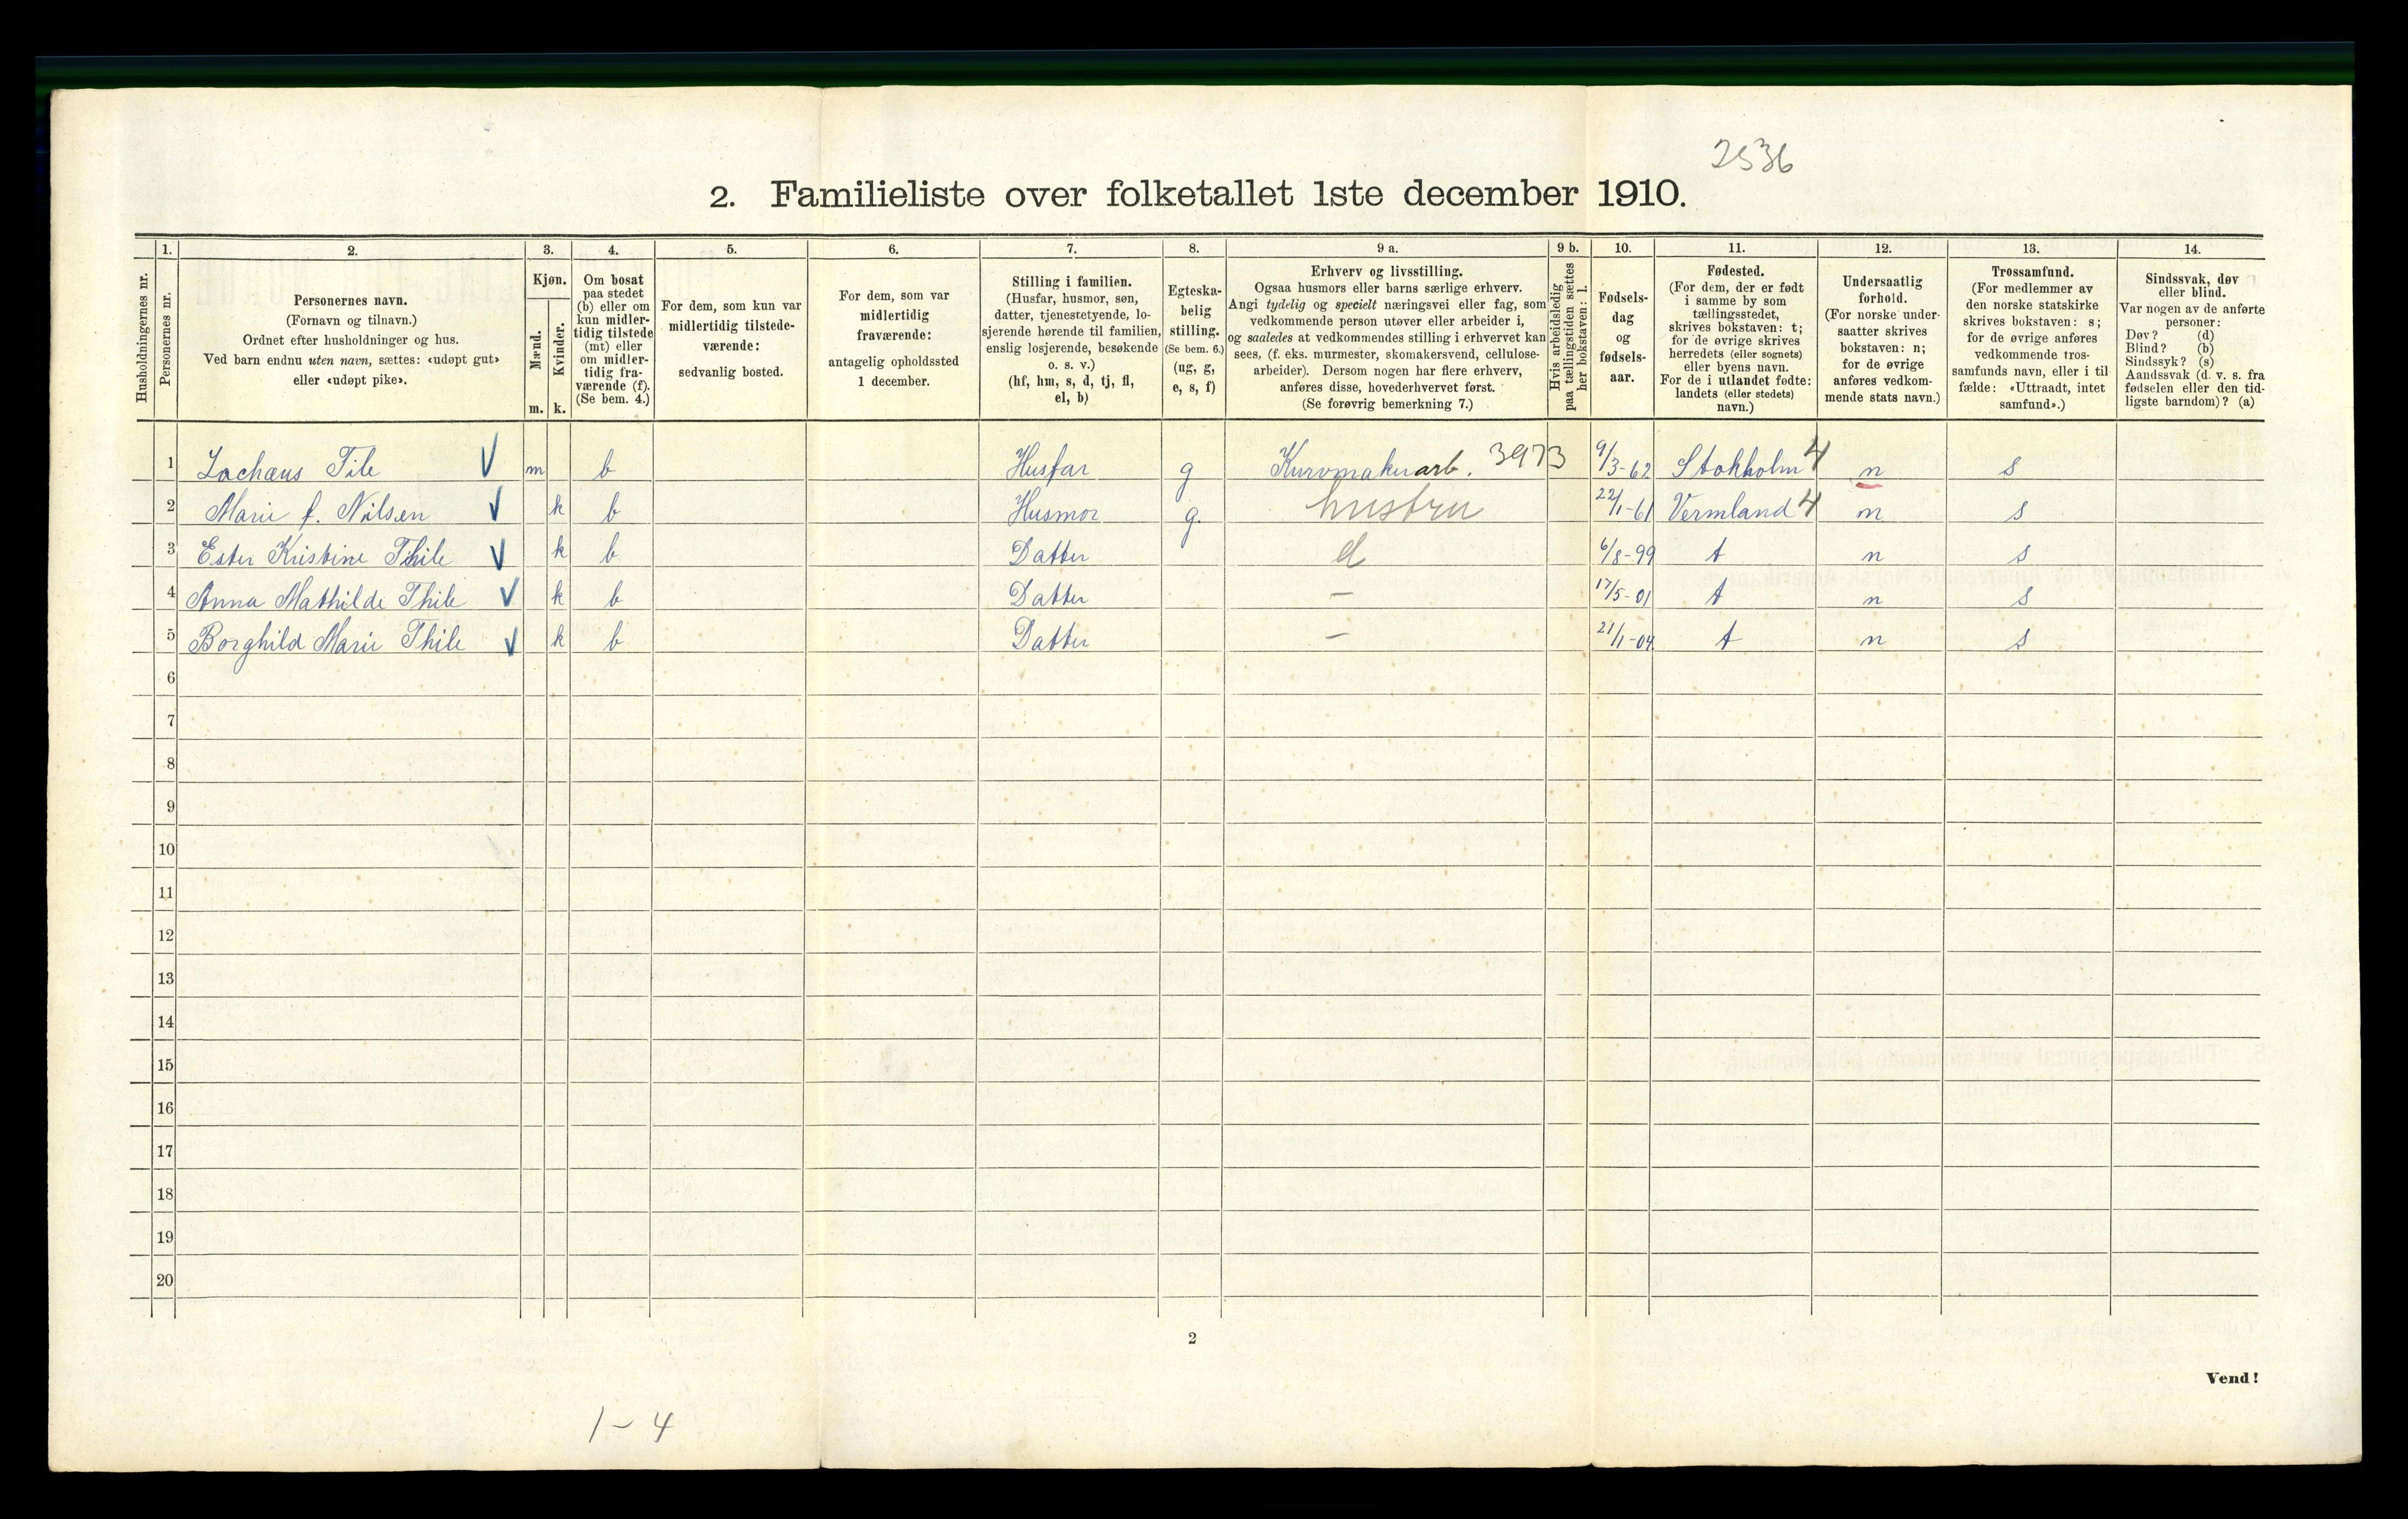 2536
2. Familieliste over folketallet 1ste december 1910.
1. 2. 3. 4. 5. 6. 7. 8. 9 a. 9 b. 10. 11. 12. 13. 14.
Husholdningernes nr.
Personernes nr.
Personernes navn.
(Fornavn og tilnavn.)
Ordnet efter husholdninger og hus.
Ved barn endnu uten navn, sættes: «udøpt gut»
eller «udøpt pike».
Kjøn.
Mænd.
Kvinder.
m. k.
Om bosat
paa stedet
(b) eller om
kun midler-
tidig tilstede
(mt) eller
om midler-
tidig fra-
værende (f).
(Se bem. 4.)
For dem, som kun var
midlertidig tilstede-
værende:
sedvanlig bosted.
For dem, som var
midlertidig
fraværende:
antagelig opholdssted
1 december.
Stilling i familien.
(Husfar, husmor, søn,
datter, tjenestetyende, lo-
sjerende hørende til familien,
enslig losjerende, besøkende
o. s. v.)
(hf, hm, s, d, tj, fl,
el, b)
Egteska-
belig
stilling.
(Se bem. 6.)
(ug, g,
e, s, f)
Erhverv og livsstilling.
Ogsaa husmors eller barns særlige erhverv.
Angi tydelig og specielt næringsvei eller fag, som
vedkommende person utøver eller arbeider i,
og saaledes at vedkommendes stilling i erhvervet kan
sees, (f. eks. murmester, skomakersvend, cellulose-
arbeider). Dersom nogen har flere erhverv,
anføres disse, hovederhvervet først.
(Se forøvrig bemerkning 7.)
Hvis arbeidsledig
paa tællingstiden sættes
her bokstaven: l.
Fødsels-
dag
og
fødsels-
aar.
Fødested.
(For dem, der er født
i samme by som
tællingsstedet,
skrives bokstaven: t;
for de øvrige skrives
herredets (eller sognets)
eller byens navn.
For de i utlandet fødte:
landets (eller stedets)
navn.)
Undersaatlig
forhold.
(For norske under-
saatter skrives
bokstaven: n;
for de øvrige
anføres vedkom-
mende stats navn.)
Trossamfund.
(For medlemmer av
den norske statskirke
skrives bokstaven: s;
for de øvrige anføres
vedkommende tros-
samfunds navn, eller i til-
fælde: «Uttraadt, intet
samfund».)
Sindssvak, døv
eller blind.
Var nogen av de anførte
personer:
Døv? (d)
Blind? (b)
Sindssyk? (s)
Aandssvak (d. v. s. fra
fødselen eller den tid-
ligste barndom)? (a)
1 Zachæus Tile m b Husfar g Kurvmakerarb. 3973 9/3-62 Stokholm 4 n s
2 Marie f. Nilsen k b Husmor g. hustru 22/1-61 Vermland 4 n s
3 Ester Kristine Thile k b Datter d 6/8-99 t n s
4 Anna Mathilde Thile k b Datter — 17/5-01 t n s
5 Borghild Marie Thile k b Datter — 21/1-04 t n s
6
7
8
9
10
11
12
13
14
15
16
17
18
19
20
2
Vend!
1-4